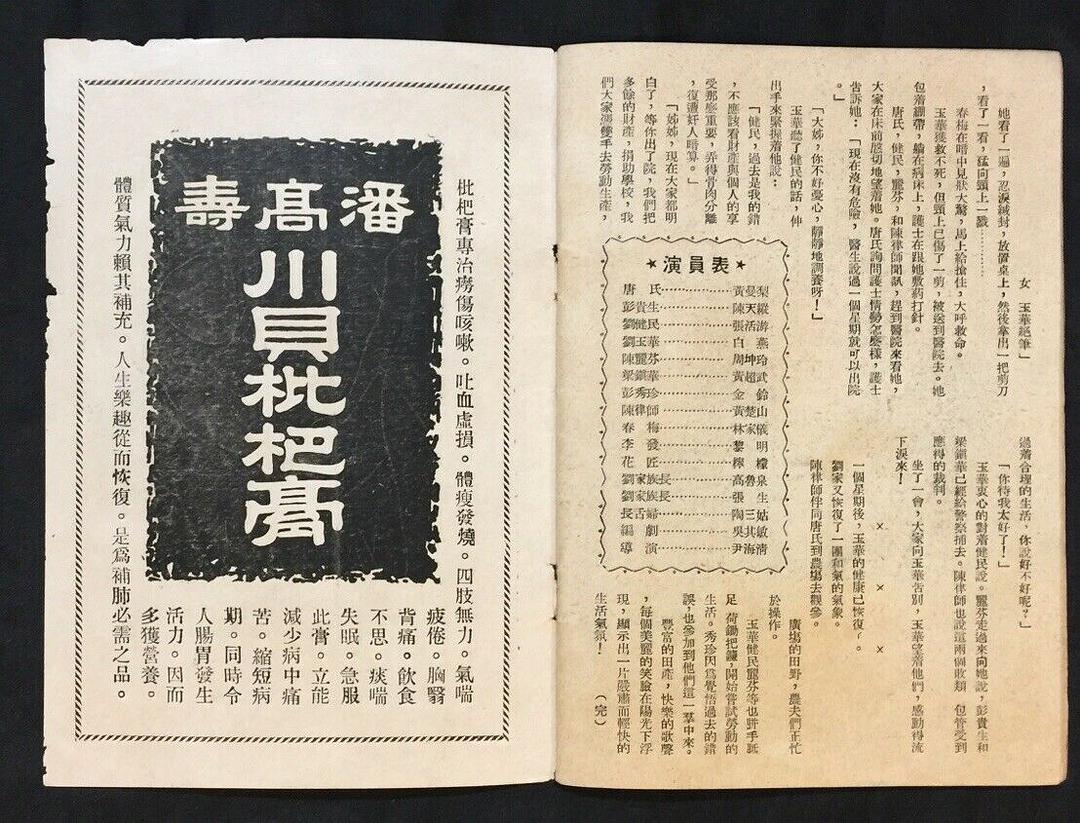 女　玉華絕筆」
她看了一遍，忍淚緘封，放置桌上，然後拿出一把剪刀
，看了一看，猛向頸上一戮…………
春梅在暗中見狀大驚，馬上給搶住，大呼救命。
玉華獲救不死，但頸上已傷了一剪，被送到醫院去。她
包着綳帶，躺在病床上，護士在跟她敷葯打針。
唐氏，健民，麗芬，和陳律師聞訊，趕到醫院來看她，
大家在床前慇切地望着她。唐氏詢問護士情勢怎麼樣，護士
告訴她：「現在沒有危險，醫生說過一個星期就可以出院
。」
「大姊，你不好憂心，靜靜地調養呀！」
玉華聽了健民的話，伸
出手來緊握着他說：
「健民，過去是我的錯
，不應該看財產與個人的享
受那麼重要，弄得骨肉分離
，復遭奸人暗算。」
「姊姊，現在大家都明
白了，等你出了院，我們把
多餘的財產，捐助學校，我
們大家憑雙手去勞動生產，
★演員表★
唐氏……………黃曼梨
彭貴生……………陳天縱
劉健民……………張活游
劉玉華……………白燕
陳麗芬……………周坤玲
梁鎮華……………黃超武
彭秀珍……………金鈴
陳律師……………黃楚山
春梅……………林家儀
李發……………黎明
花匠……………檸檬
劉家族長……………高魯泉
劉家族長……………張生
長舌婦……………陶三姑
編劇……………吳其敏
導演……………尹海清
過着合理的生活，你說好不好呢？」
「你待我太好了！」
玉華衷心的對着健民說。麗芬走過來向她說，彭貴生和
梁鎮華已經給警察捕去。陳律師也說這兩個敗類　包管受到
應得的裁判。
坐了一會，大家向玉華告別，玉華望着他們，感動得流
下淚來！
×　×　×
一個星期後，玉華的健康已恢復了。
劉家又恢復了一團和氣的氣象。
陳律師伴同唐氏到農場去觀參。
廣塲的田野，農夫們正忙
於操作。
玉華健民麗芬等也胼手胝
足　荷鋤把鐮，開始嘗試勞動的
生活。秀珍因為覺悟過去的錯
誤，也參加到他們這一羣中來。
豐富的田產，快樂的歌聲
，每個美麗的笑臉在陽光下浮
現，顯示出一片嚴肅而輕快的
生活氣氛！　　（完）
枇杷膏專治癆傷咳嗽。吐血虛損。體瘦發燒。四肢無力。氣喘
疲倦。胸翳
背痛。飲食
不思。痰喘
失眠。急服
此膏。立能
減少病中痛
苦。縮短病
期。同時令
人腸胃發生
活力。因而
多獲營養。
體質氣力賴其補充。人生樂趣從而恢復。是爲補肺必需之品。
潘髙壽
川貝枇杷膏